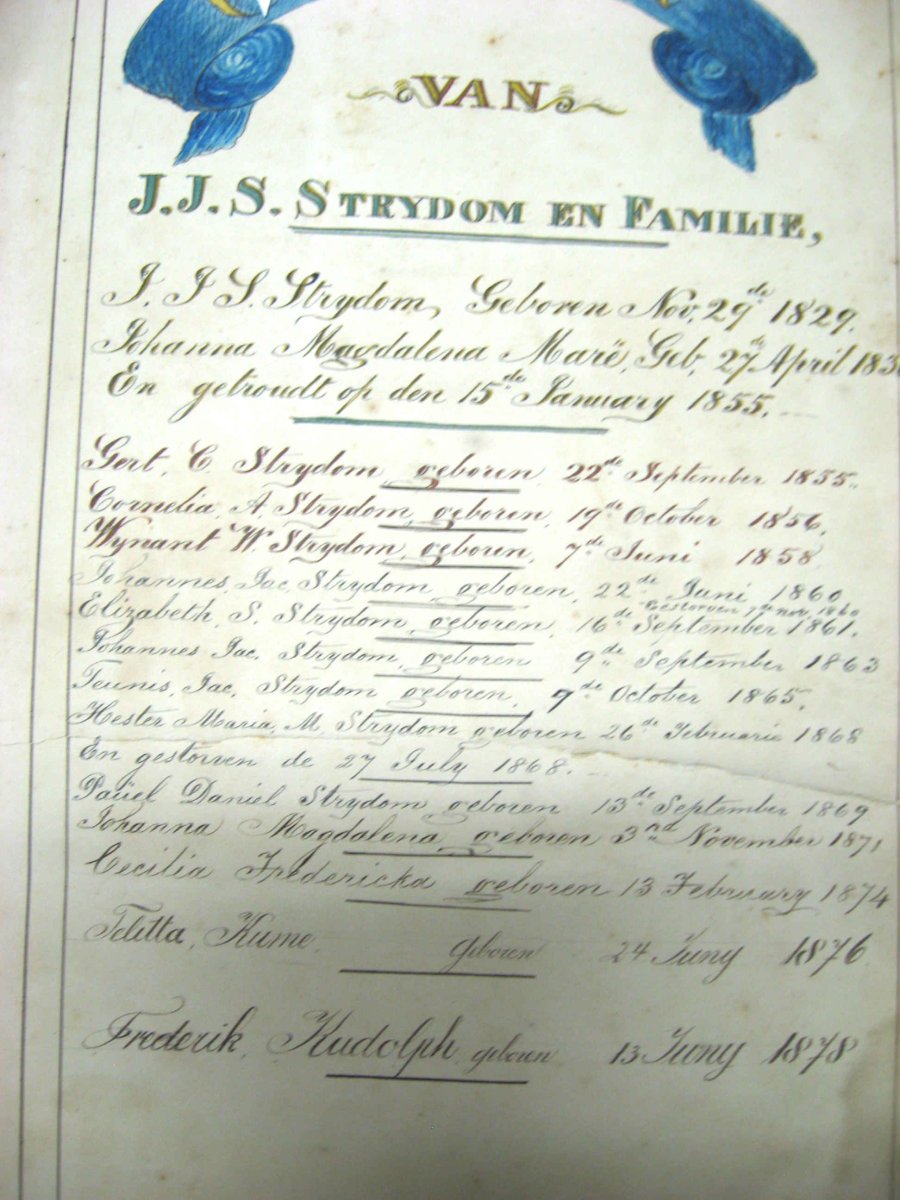 VAN
J.J.S. STRYDOM EN FAMILIE,
J. J S. Strydom, Geboren Nov, 29de 1829.
Johanna Magdalena Marë, Geb, 27de April 183
En getroudt op den 15de January 1855.
Gert, C. Strydom, geboren, 22de September 1855.
Cornelia, A. Strydom, geboren, 19de October 1856.
Wynant W. Strydom, geboren, 7de Juni 1858
Johannes, Jac, Strydom, geboren, 22de Juni 1860
Gestorven 7de nov, 1860
Elizabeth, S. Strydom, geboren, 16de September 1861.
Johannes Jac. Strydom, geboren 9de September 1863
Teunis, Jac, Strydom geboren, 9de October 1865.
Hester Maria, M, Strydom geboren 26de Februarie 1868
En gestorven de 27 July 1868.
Paüel Daniel Strydom geboren 13de September 1869
Johanna Magdalena, geboren 3nd November 1871
Cecilia Fredericka geboren 13 February 1874
geboren 24 Juny 1876
Frederik, Rudolph, geboren 13 Juny 1878